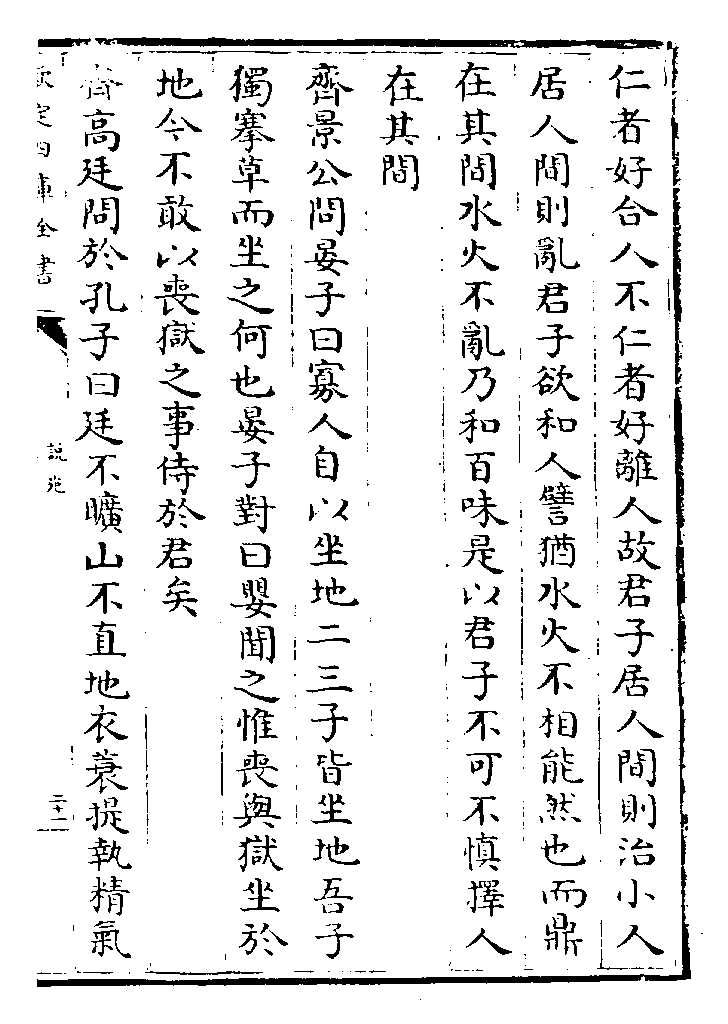 仁者好合人不仁者好離人故君子居人間則治小人
居人間則亂君子欲和人譬猶水火不相能然也而鼎
在其間水火不亂乃和百味是以君子不可不慎擇人
在其間
齊景公問晏子曰寡人自以坐地二三子皆坐地吾子
獨搴草而坐之何也晏子對曰嬰聞之惟喪與獄坐於
地今不敢以喪獄之事侍於君矣
齊高廷問於孔子曰廷不曠山不直地衣蓑提執精氣
欽定四庫全書
說苑
二十一